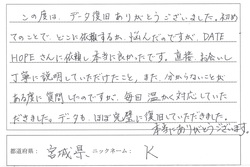 この度は、データ復旧ありがとうございました。初め
てのことで、どこに依頼するか、悩んだのですが、DATE
HOPEさんに依頼し本当に良かったです。直接お会いし
丁寧に説明していただけたこと、また、分からないことが
ある度に質問したのですが、毎日温かく対応していた
だきました。データも、ほぼ完璧に復旧していただきました。
本当にありがとうございます。
都道府県: 宮城県 ニックネーム: K